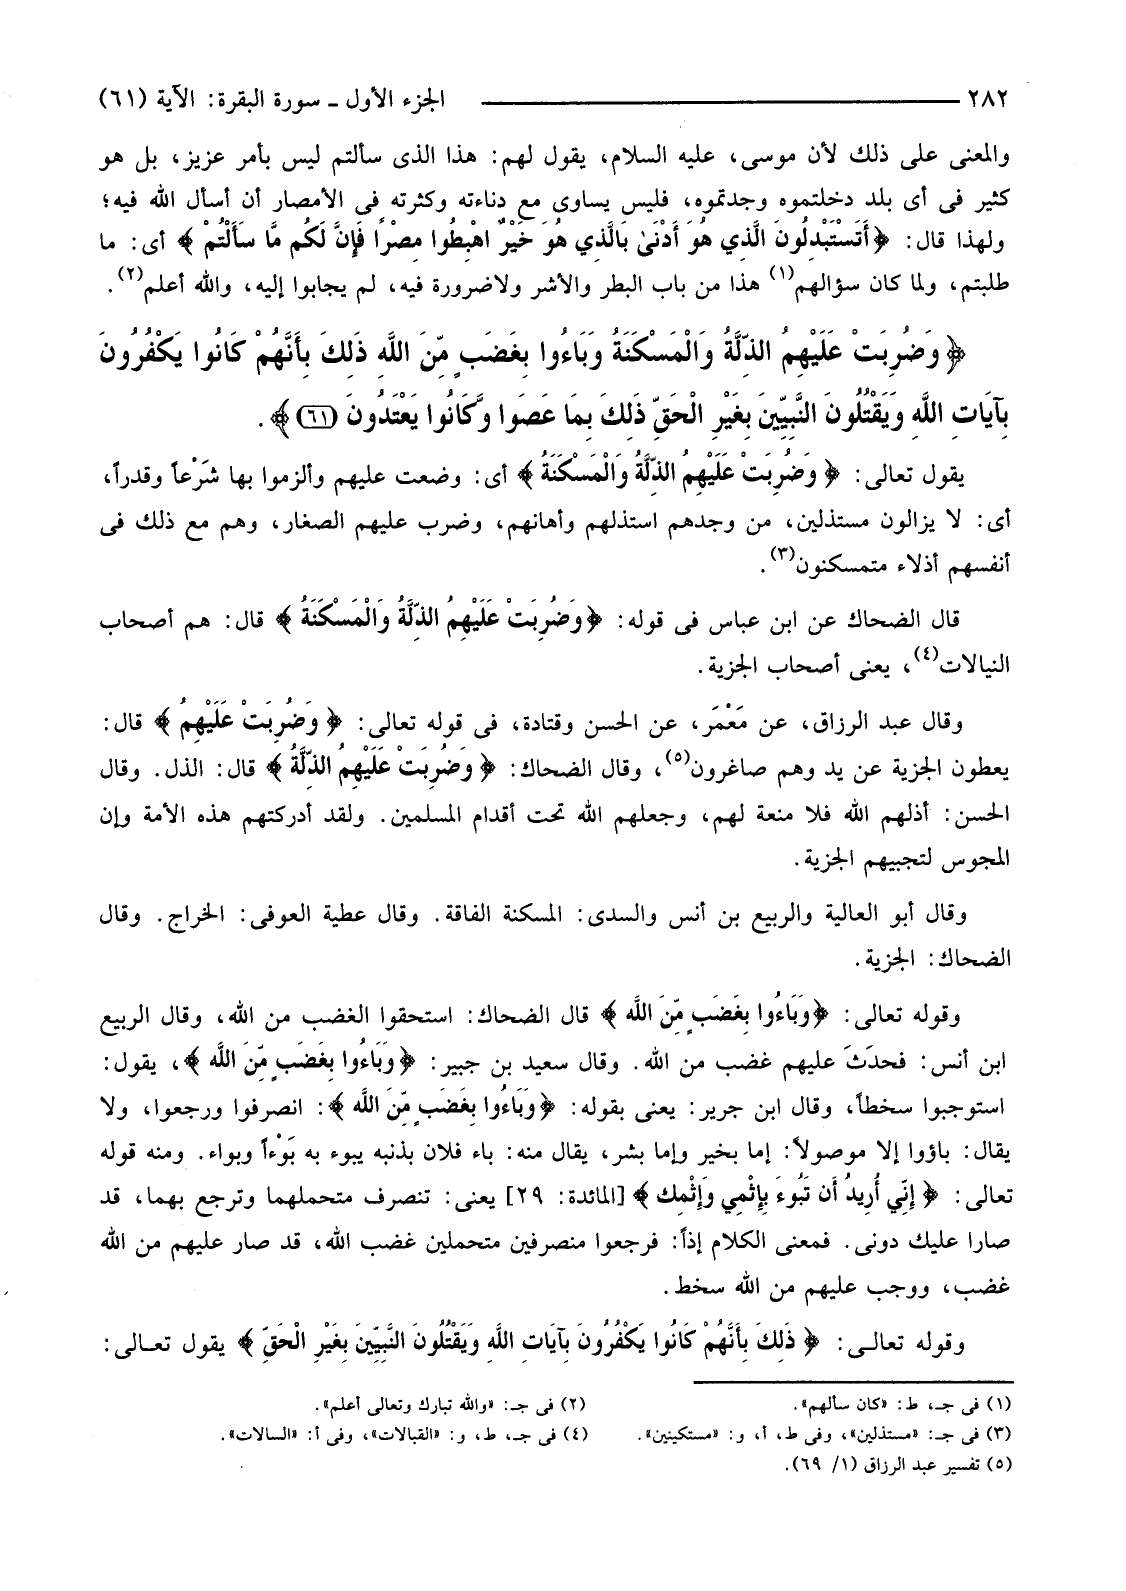 ٢٨٢ ــــــــــــــ الجزء الأول ـ سورة البقرة: الآية (٦١)
والمعنى على ذلك لأن موسى، عليه السلام، يقول لهم: هذا الذى سألتم ليس بأمر عزيز، بل هو
كثير فى أى بلد دخلتموه وجدتموه، فليس يساوى مع دناءته وكثرته فى الأمصار أن أسأل الله فيه؛
ولهذا قال: ﴿أَتَسْتَبْدِلُونَ الَّذِي هُوَ أَدْنَىٰ بِالَّذِي هُوَ خَيْرٌ اهْبِطُوا مِصْرًا فَإِنَّ لَكُم مَّا سَأَلْتُمْ﴾ أى: ما
طلبتم، ولما كان سؤالهم(١) هذا من باب البطر والأشر ولاضرورة فيه، لم يجابوا إليه، والله أعلم(٢).
﴿وَضُرِبَتْ عَلَيْهِمُ الذِّلَّةُ وَالْمَسْكَنَةُ وَبَاءُوا بِغَضَبٍ مِّنَ اللَّهِ ذَلِكَ بِأَنَّهُمْ كَانُوا يَكْفُرُونَ
بِآيَاتِ اللَّهِ وَيَقْتُلُونَ النَّبِيِّينَ بِغَيْرِ الْحَقِّ ذَلِكَ بِمَا عَصَوا وَّكَانُوا يَعْتَدُونَ (٦١)﴾.
يقول تعالى: ﴿وَضُرِبَتْ عَلَيْهِمُ الذِّلَّةُ وَالْمَسْكَنَةُ﴾ أى: وضعت عليهم وألزموا بها شَرْعاً وقدراً،
أى: لا يزالون مستذلين، من وجدهم استذلهم وأهانهم، وضرب عليهم الصغار، وهم مع ذلك فى
أنفسهم أذلاء متمسكنون(٣).
قال الضحاك عن ابن عباس فى قوله: ﴿وَضُرِبَتْ عَلَيْهِمُ الذِّلَّةُ وَالْمَسْكَنَةُ﴾ قال: هم أصحاب
النيالات(٤)، يعنى أصحاب الجزية.
وقال عبد الرزاق، عن مَعْمَر، عن الحسن وقتادة، فى قوله تعالى: ﴿وَضُرِبَتْ عَلَيْهِمُ﴾ قال:
يعطون الجزية عن يد وهم صاغرون(٥)، وقال الضحاك: ﴿وَضُرِبَتْ عَلَيْهِمُ الذِّلَّةُ﴾ قال: الذل. وقال
الحسن: أذلهم الله فلا منعة لهم، وجعلهم الله تحت أقدام المسلمين. ولقد أدركتهم هذه الأمة وإن
المجوس لتجبيهم الجزية.
وقال أبو العالية والربيع بن أنس والسدى: المسكنة الفاقة. وقال عطية العوفى: الخراج. وقال
الضحاك: الجزية.
وقوله تعالى: ﴿وَبَاءُوا بِغَضَبٍ مِّنَ اللَّهِ﴾ قال الضحاك: استحقوا الغضب من الله، وقال الربيع
ابن أنس: فحدَثَ عليهم غضب من الله. وقال سعيد بن جبير: ﴿وَبَاءُوا بِغَضَبٍ مِّنَ اللَّهِ﴾، يقول:
استوجبوا سخطاً، وقال ابن جرير: يعنى بقوله: ﴿وَبَاءُوا بِغَضَبٍ مِّنَ اللَّهِ﴾: انصرفوا ورجعوا، ولا
يقال: باؤوا إلا موصولاً: إما بخير وإما بشر، يقال منه: باء فلان بذنبه يبوء به بَوْءاً وبواء. ومنه قوله
تعالى: ﴿إِنِّي أُرِيدُ أَن تَبُوءَ بِإِثْمِي وَإِثْمِكَ﴾ [المائدة: ٢٩] يعنى: تنصرف متحملهما وترجع بهما، قد
صارا عليك دونى. فمعنى الكلام إذاً: فرجعوا منصرفين متحملين غضب الله، قد صار عليهم من الله
غضب، ووجب عليهم من الله سخط.
وقوله تعالـى: ﴿ذَلِكَ بِأَنَّهُمْ كَانُوا يَكْفُرُونَ بِآيَاتِ اللَّهِ وَيَقْتُلُونَ النَّبِيِّينَ بِغَيْرِ الْحَقِّ﴾ يقول تعـالى:
(١) فى جـ، ط: «كان سألهم». (٢) فى جـ: «والله تبارك وتعالى أعلم».
(٣) فى جـ: «مستذلين»، وفى ط، أ، و: «مستكينين». (٤) فى جـ، ط، و: «القبالات»، وفى أ: «السالات».
(٥) تفسير عبد الرزاق (١/ ٦٩).